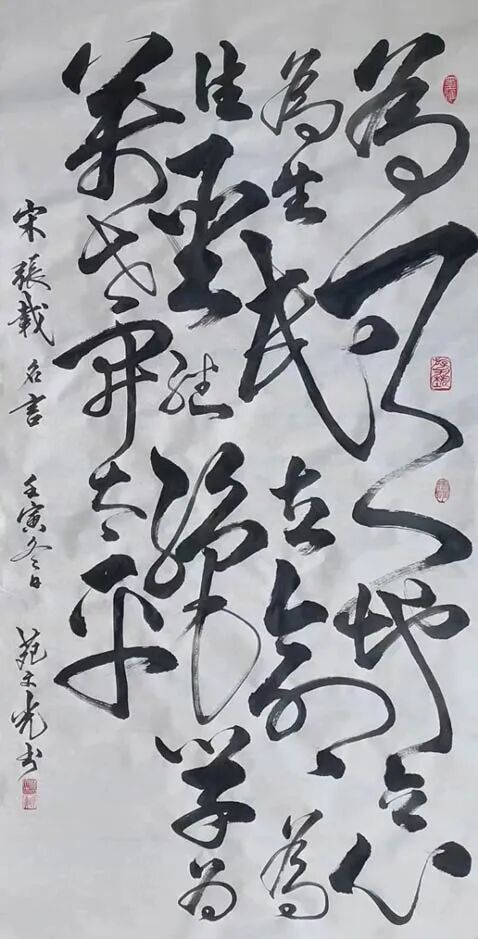 為天地立心
為生民立命為
往聖继絕学为
萬世開太平
宋張載名言 壬寅冬日 光书